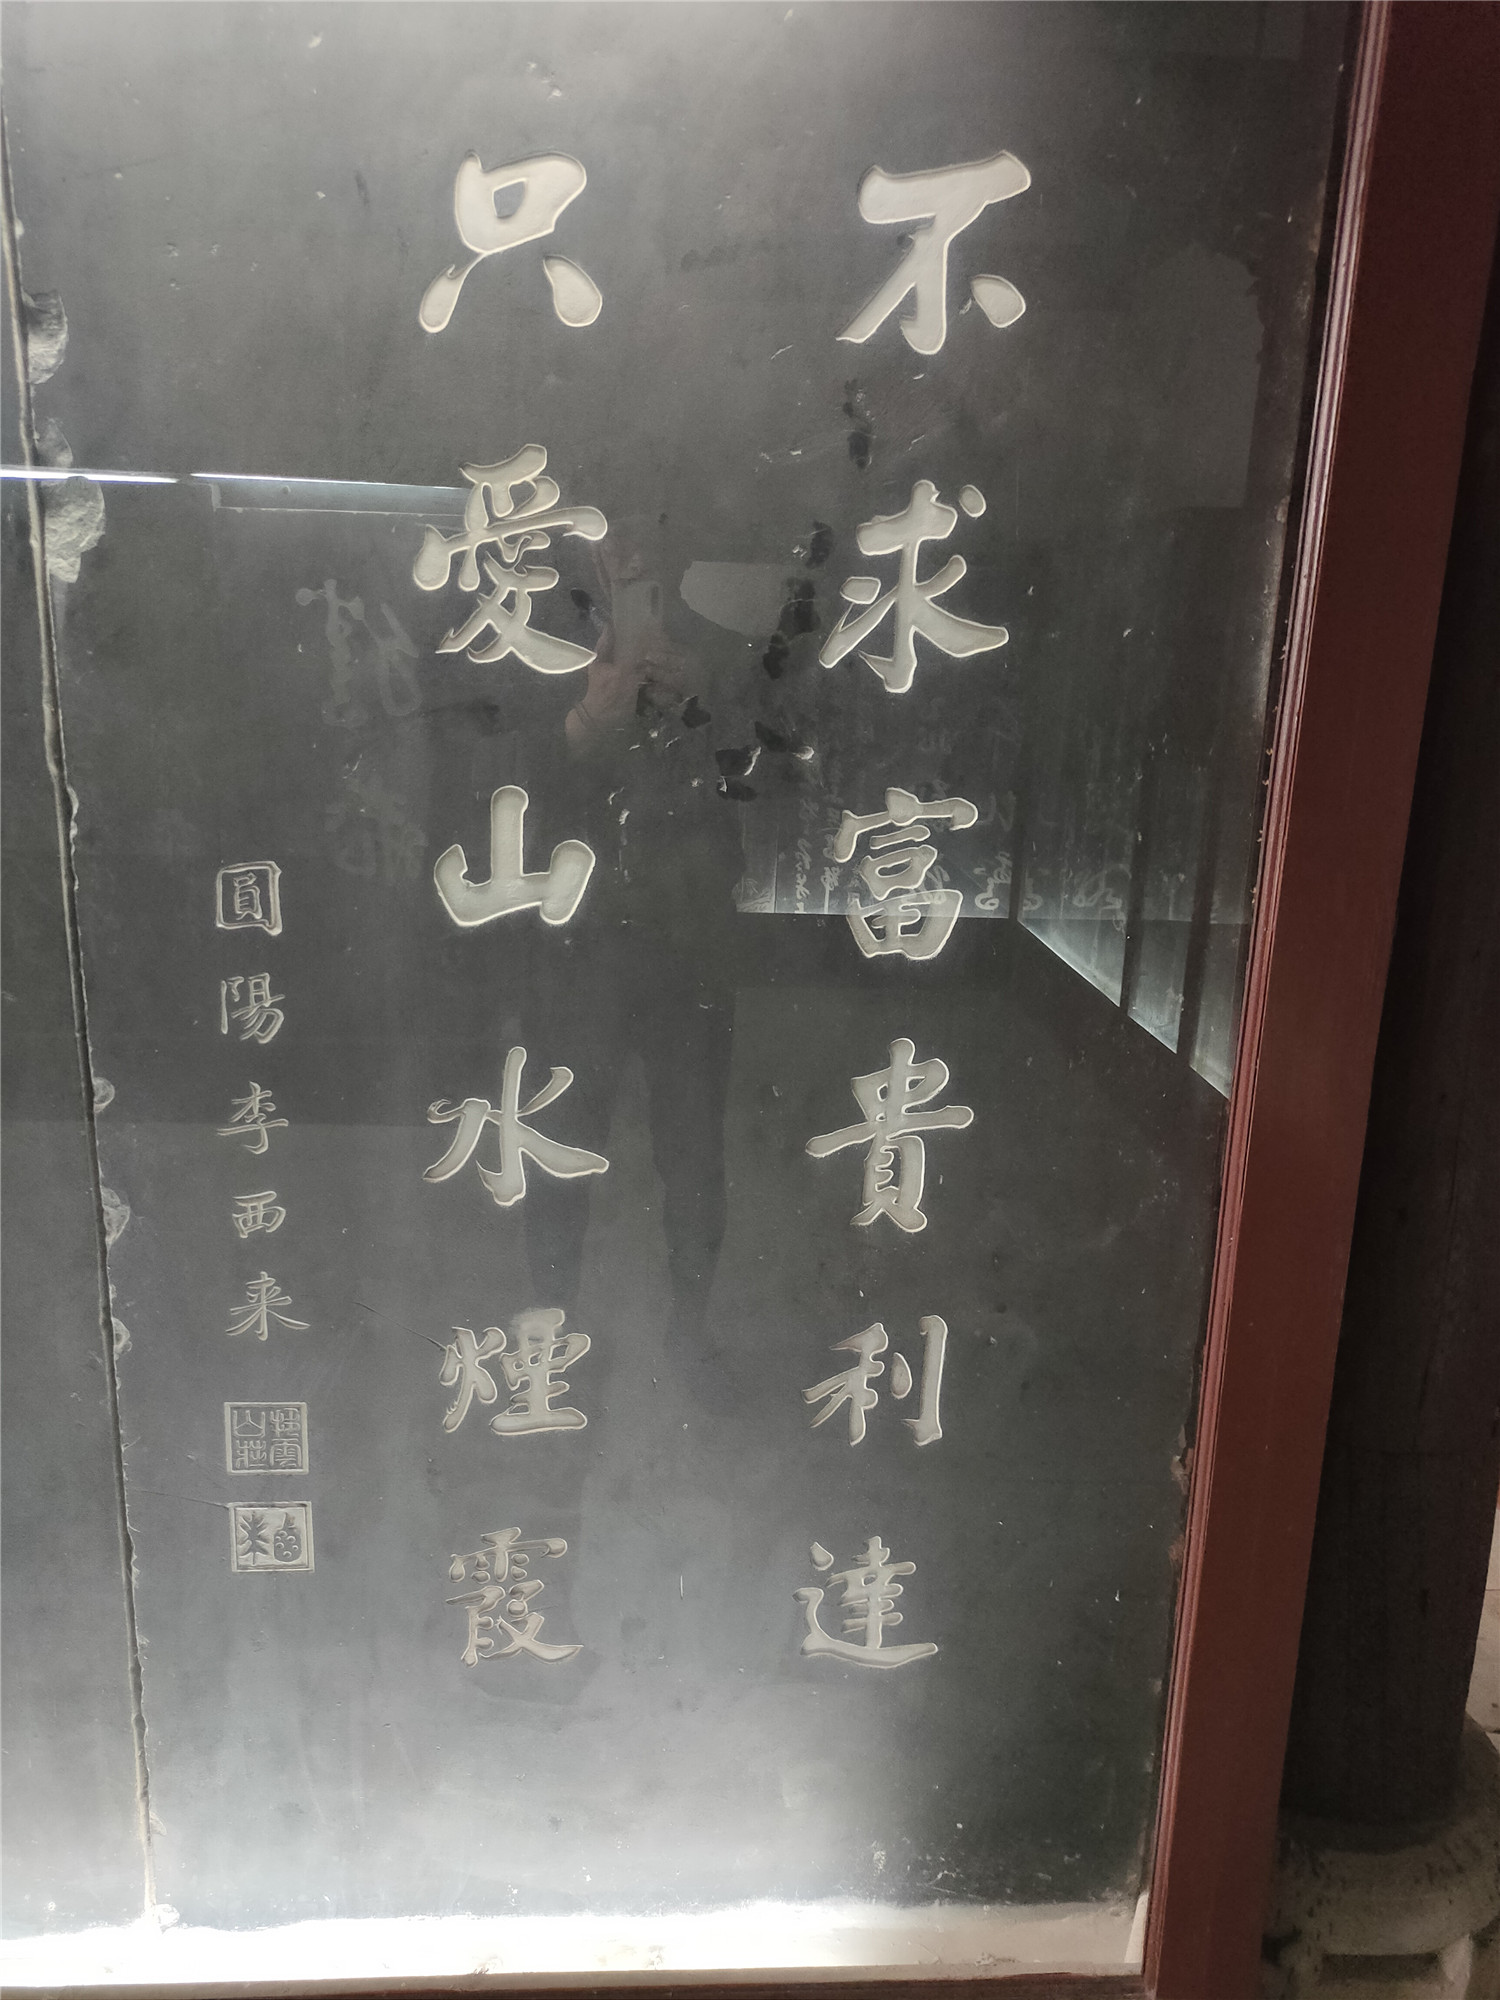 不求富貴利達
只愛山水煙霞
圓陽李西来